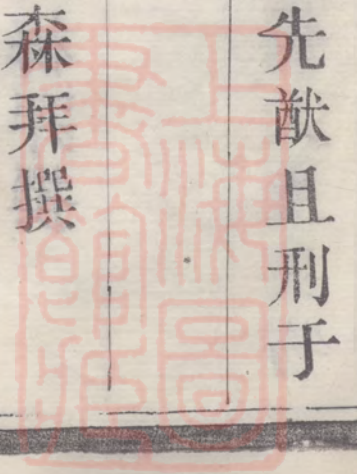 先猷且刑于
森拜撰
上海圖書館藏